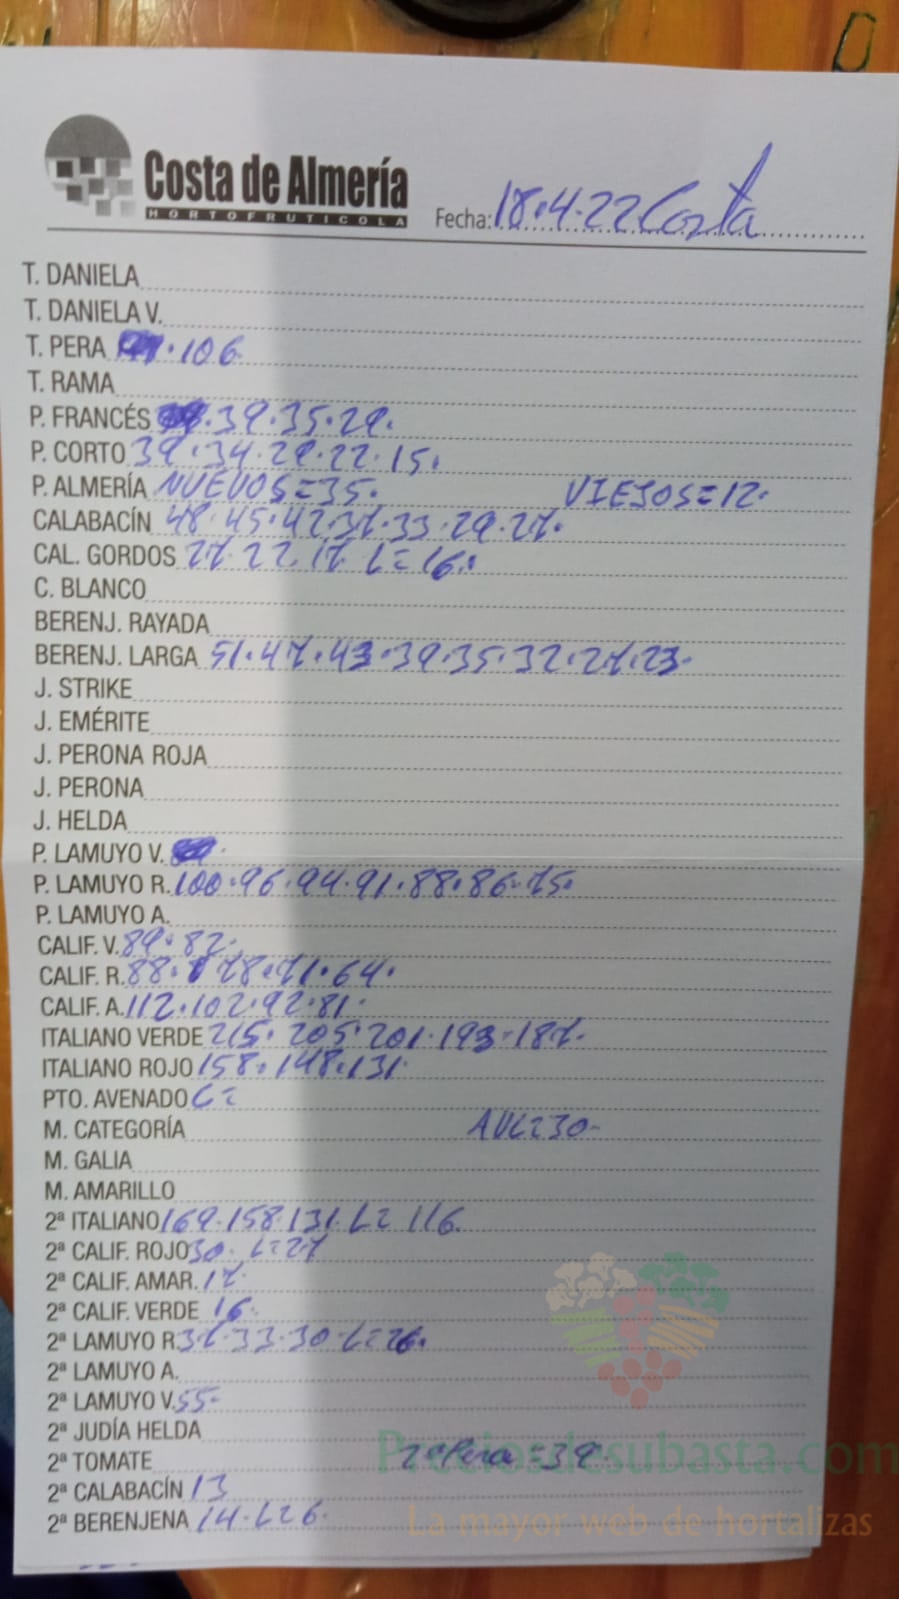 Costa de Almería
HORTOFRUTICOLA
Fecha: 18.4.22 Costa
T. DANIELA
T. DANIELA V.
T. PERA 106
T. RAMA
P. FRANCÉS 39.35.29.
P. CORTO 39.34.29.22.15.
P. ALMERÍA NUEVOS=35. VIEJOS=12.
CALABACÍN 48.45.42.37.33.29.27.
CAL. GORDOS 27.22.17 L=16.
C. BLANCO
BERENJ. RAYADA
BERENJ. LARGA 51.47.43.39.35.32.27.23.
J. STRIKE
J. EMÉRITE
J. PERONA ROJA
J. PERONA
J. HELDA
P. LAMUYO V.
P. LAMUYO R. 100.96.94.91.88.86.75.
P. LAMUYO A.
CALIF. V. 89.82.
CALIF. R. 88.78.71.64.
CALIF. A. 112.102.92.81.
ITALIANO VERDE 215.205.201.193.187.
ITALIANO ROJO 158.148.131.
PTO. AVENADO C=
M. CATEGORÍA AVL=30-
M. GALIA
M. AMARILLO
2ª ITALIANO 169.158.131. L= 116.
2ª CALIF. ROJO 30. L=27
2ª CALIF. AMAR. 17.
2ª CALIF. VERDE 16.
2ª LAMUYO R. 37.33.30 L=26.
2ª LAMUYO A.
2ª LAMUYO V. 55-
2ª JUDÍA HELDA
2ª TOMATE 2ª Pera =39.
2ª CALABACÍN 13
2ª BERENJENA 14. L=6.
Preciosdesubasta.com
La mayor web de hortalizas